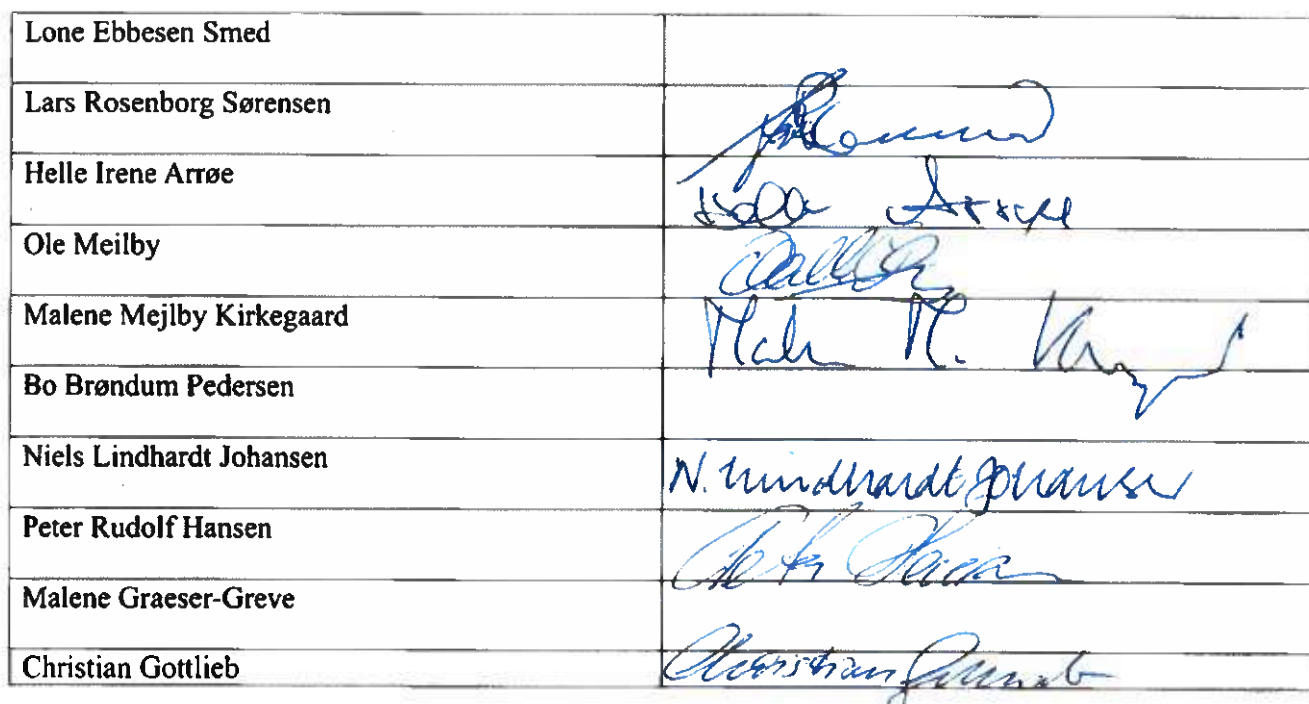 Lone Ebbesen Smed
Lars Rosenborg Sørensen
Helle Irene Arrøe
Helle Arrøe
Ole Meilby
Malene Mejlby Kirkegaard
Malene M. 
Bo Brøndum Pedersen
Niels Lindhardt Johansen
N. Lindhardt Johansen
Peter Rudolf Hansen
Peter Hansen
Malene Graeser-Greve
Christian Gottlieb
Christian Gottlieb